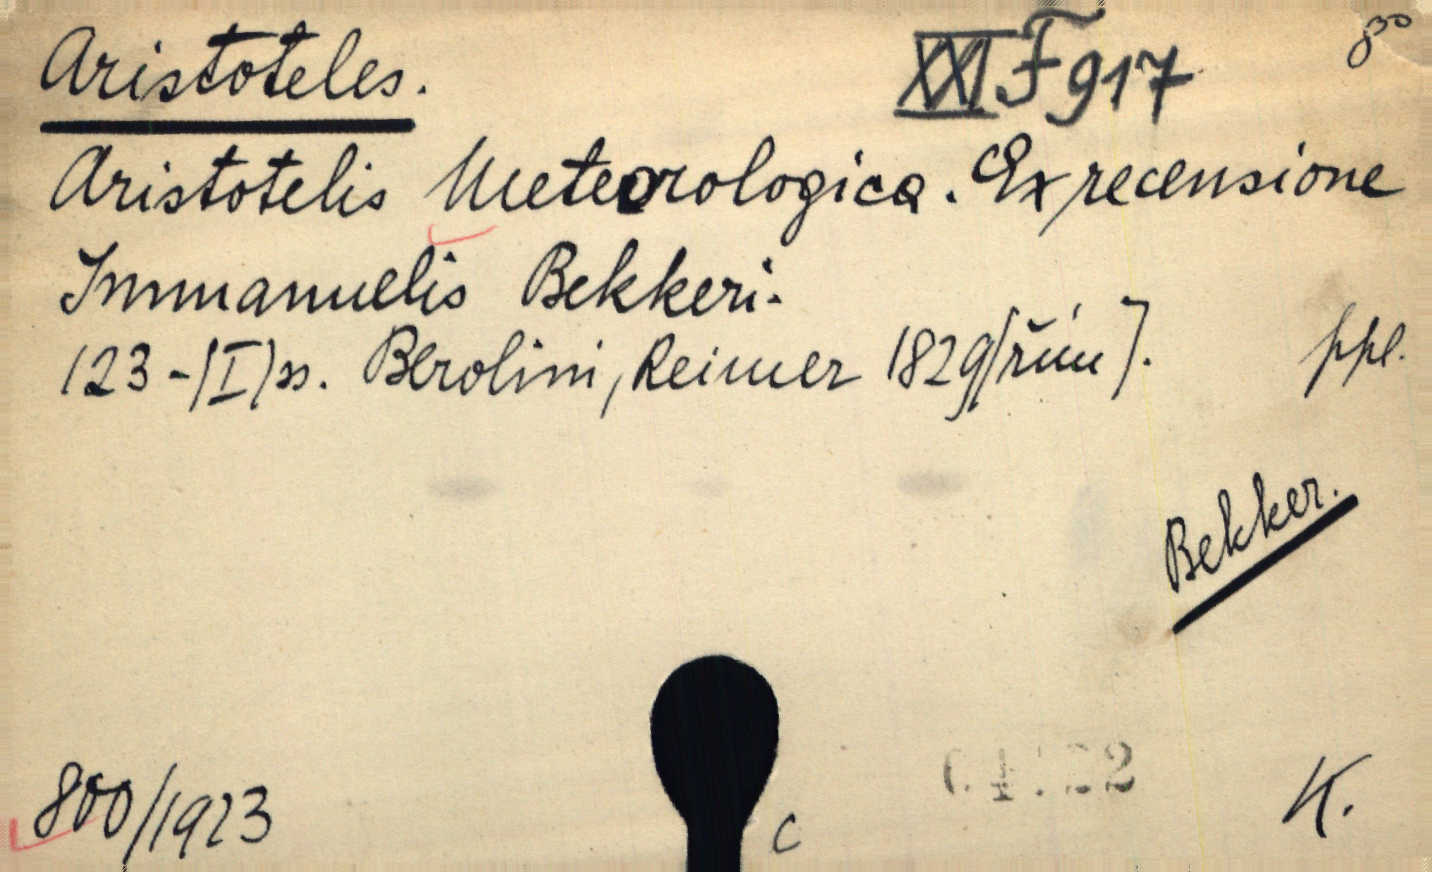 Aristoteles.
XXI F 917
8°
Aristotelis Meteorologica. Ex recensione
Immanuelis Bekkeri.
123-(I)ss. Berolini, Reimer 1829[řím].
ppl.
Bekker.
800/1923
c
K.